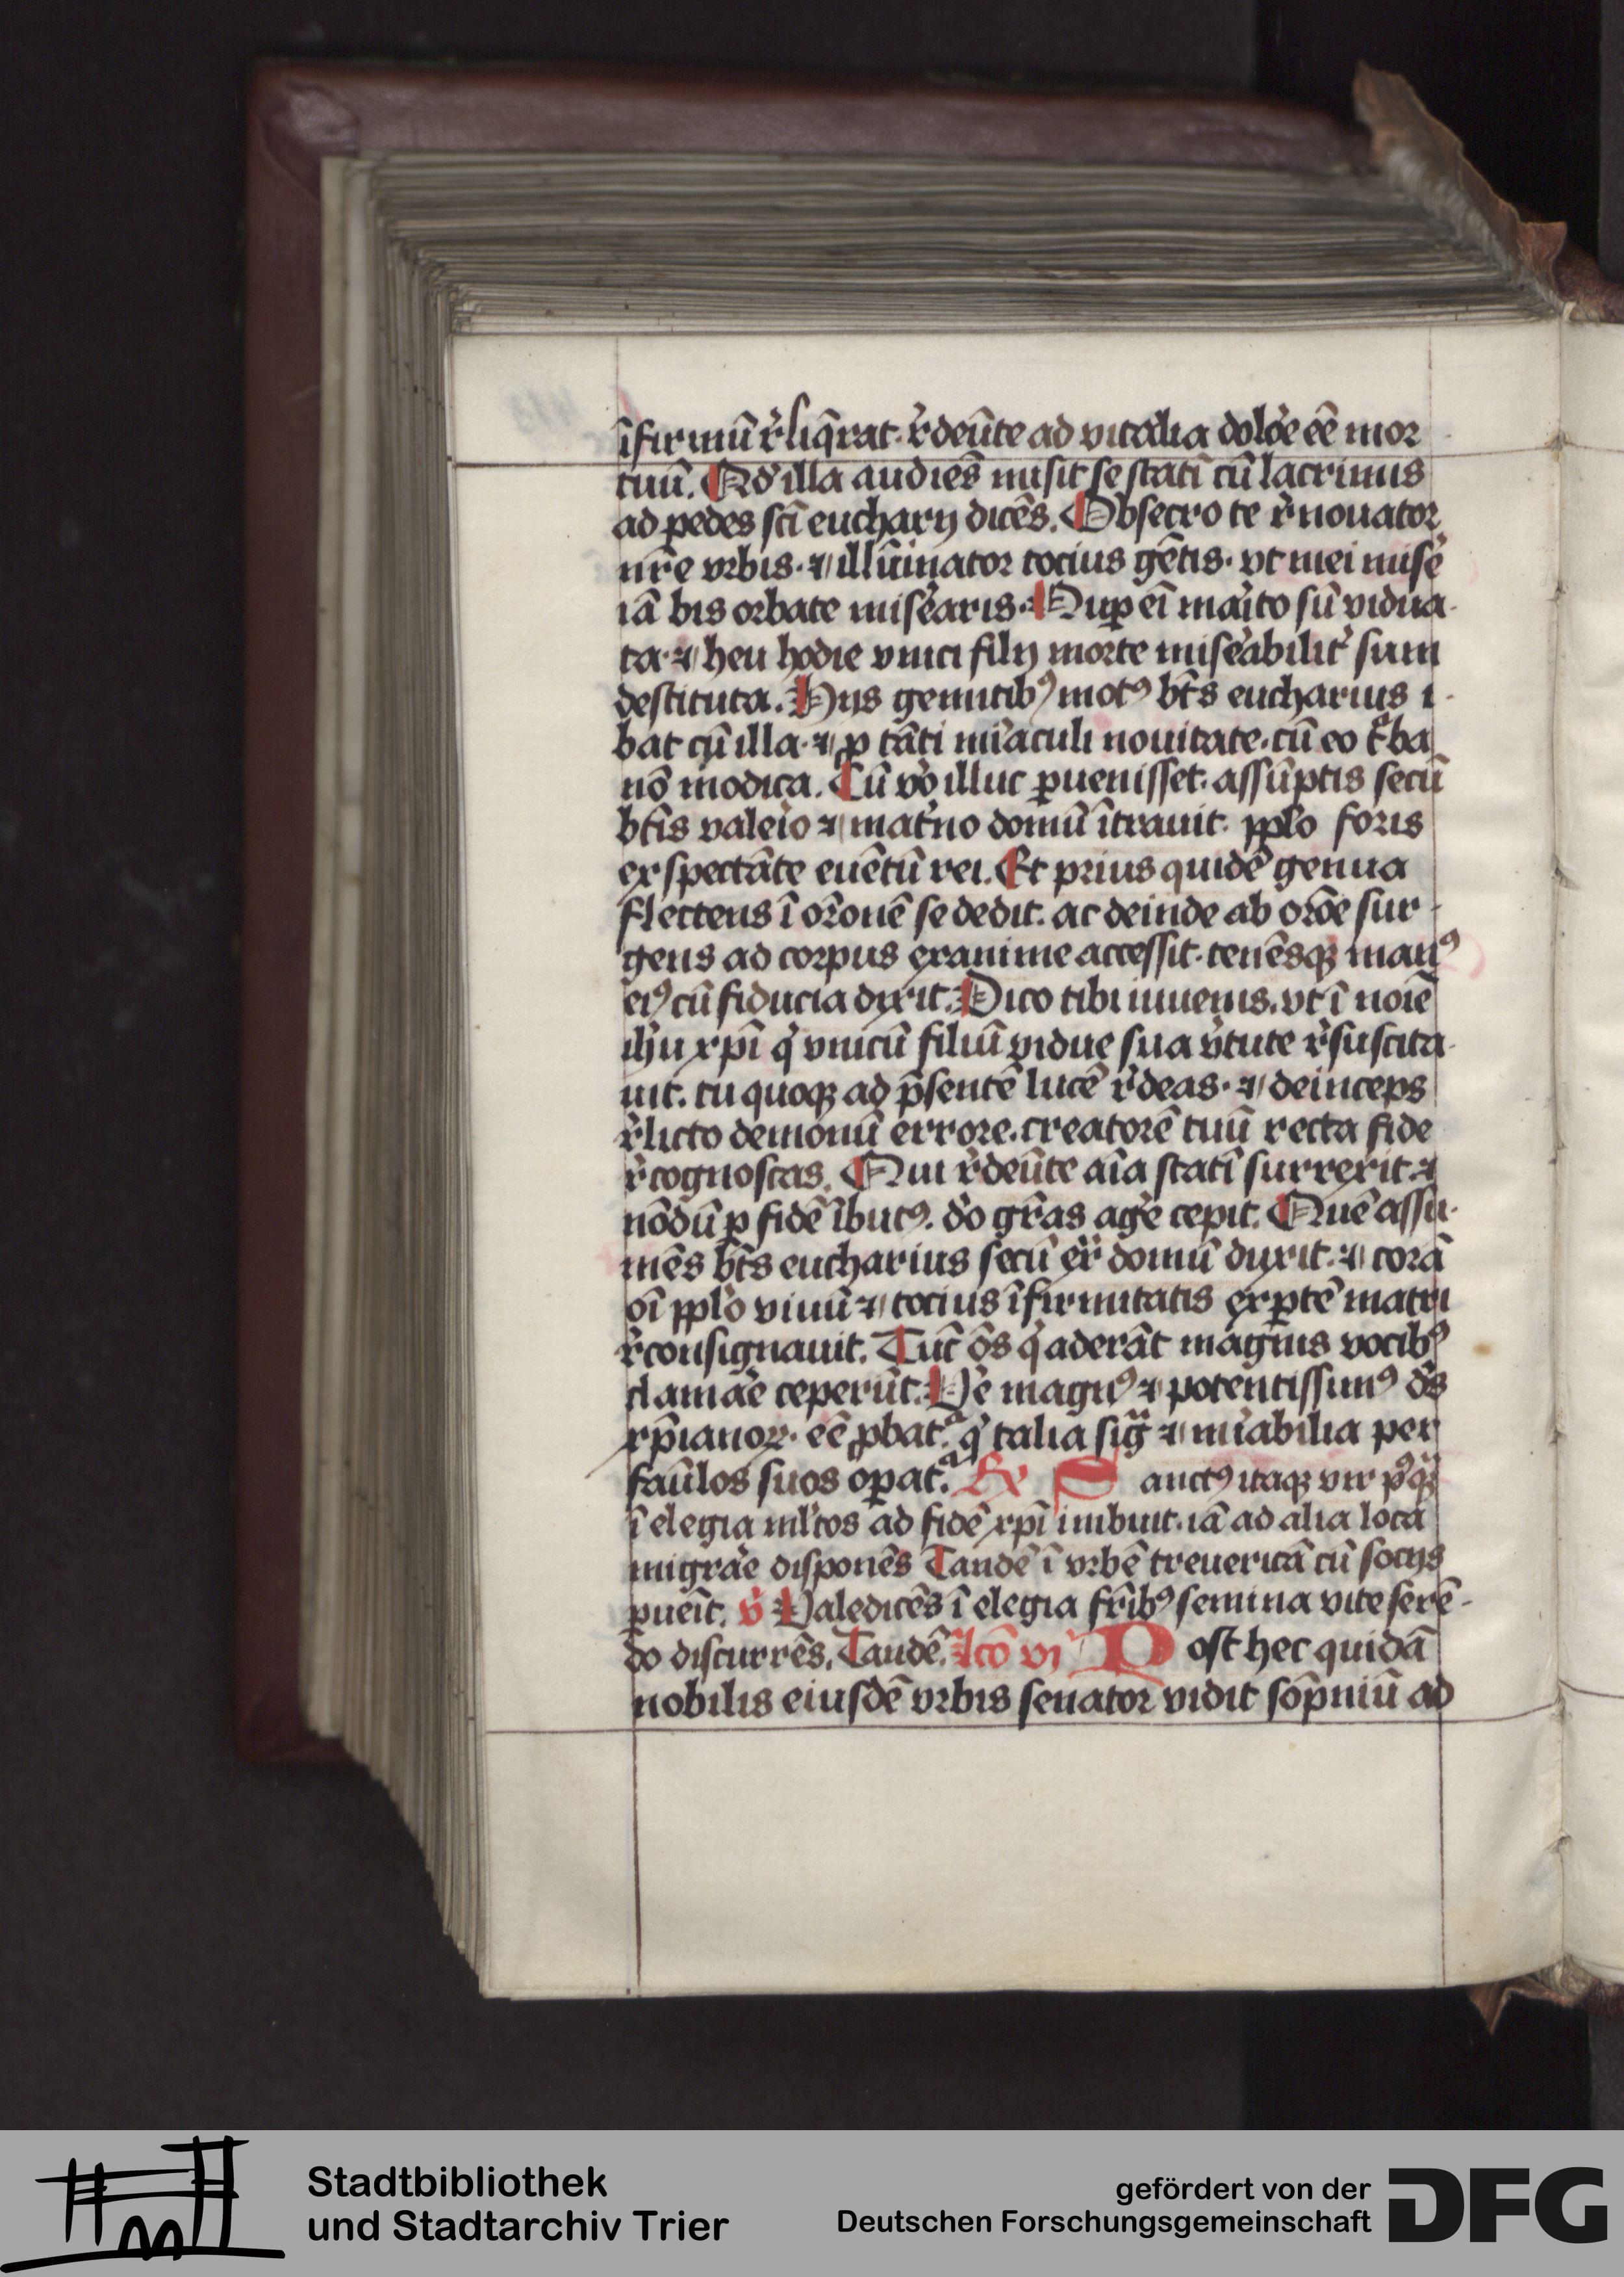 īfirmū r̓liq̄rat· r̓deūte ad vitalia dolo̓e eē mor
tuū. Qd̓ illa audiēs misit se statī cū lacrimis
ad pedes scī eucharij dicēs. Obsecro te r̓nouator
nr̄e vrbis· ⁊ illūinator tocius gētis· vt mei mise̓
iā bis orbate mise̓aris· Nup̄ eī mai̓to sū vidua-
ta· ⁊ heu hodie vnici filij morte mise̓abilit̓ sum
destituta. Hijs gemitibꝰ motꝰ bt̄s eucharius i-
bat cū illa· ⁊ ꝓ tāti mi̓aculi nouitate· cū eo tᵃba
nō modica. Cū vo̓ illuc ꝑuenisset· assūptis secū
bt̄is valeīo ⁊ mat̓no domū ītrauit· pplo̓ foris
exspectāte euētū rei. Et prius quidē genua
flectens ī or̄onē se dedit· ac deinde ab orōe sur-
gens ad corpus exanime accessit· tenēsqꝫ manꝰ
eiꝰ cū fiducia dixit. Dico tibi iuuenis. vt ī noīe
ih̓u xpī q̓ vnicū filiū vidue sua v̓tute r̓suscita-
uit. tu quoqꝫ ad p̄sentē lucē r̓deas· ⁊ deinceps
r̓licto demonū errore· creatorē tuū recta fide
r̓cognoscas. Qui r̓deūte aīa statī surrexit· ⁊
nōdū ꝑ fidē ībutꝰ. do̓ gr̄as age̓ cepit. Quē assu-
mēs bt̄s eucharius secū ext̄ domū duxit· ⁊ corā
oī pplo̓ viuū ⁊ tocius īfirmitatis exꝑtē matri
r̓consignauit. Tūc ōs q̓ aderāt magnis vocibꝰ
clamae̓ ceperūt. Ve̓ magnꝰ ⁊ potentissimꝰ ds̄
xp̄ianoꝝ· eē ꝓbat᷑. q̓ talia sigᵃ ⁊ mi̓abilia per
faūlos suos opat᷑. Ex Sanctꝰ itaqꝫ vir pꝰqᷓ
ī elegia ml̓tos ad fidē xpī imbuit· iā ad alia loca
migrae̓ disponēs Tandē ī vrbē treuericā cū socijs
ꝑueīt. v̓ Valedicēs ī elegia fr̄ibꝰ semina vite serē-
do discurrēs. Tandē. lcō vj Post hec quidā
nobilis eiusdē vrbis senator vidit sōpniū ad
Stadtbibliothek
und Stadtarchiv Trier
gefördert von der
Deutschen Forschungsgemeinschaft
DFG